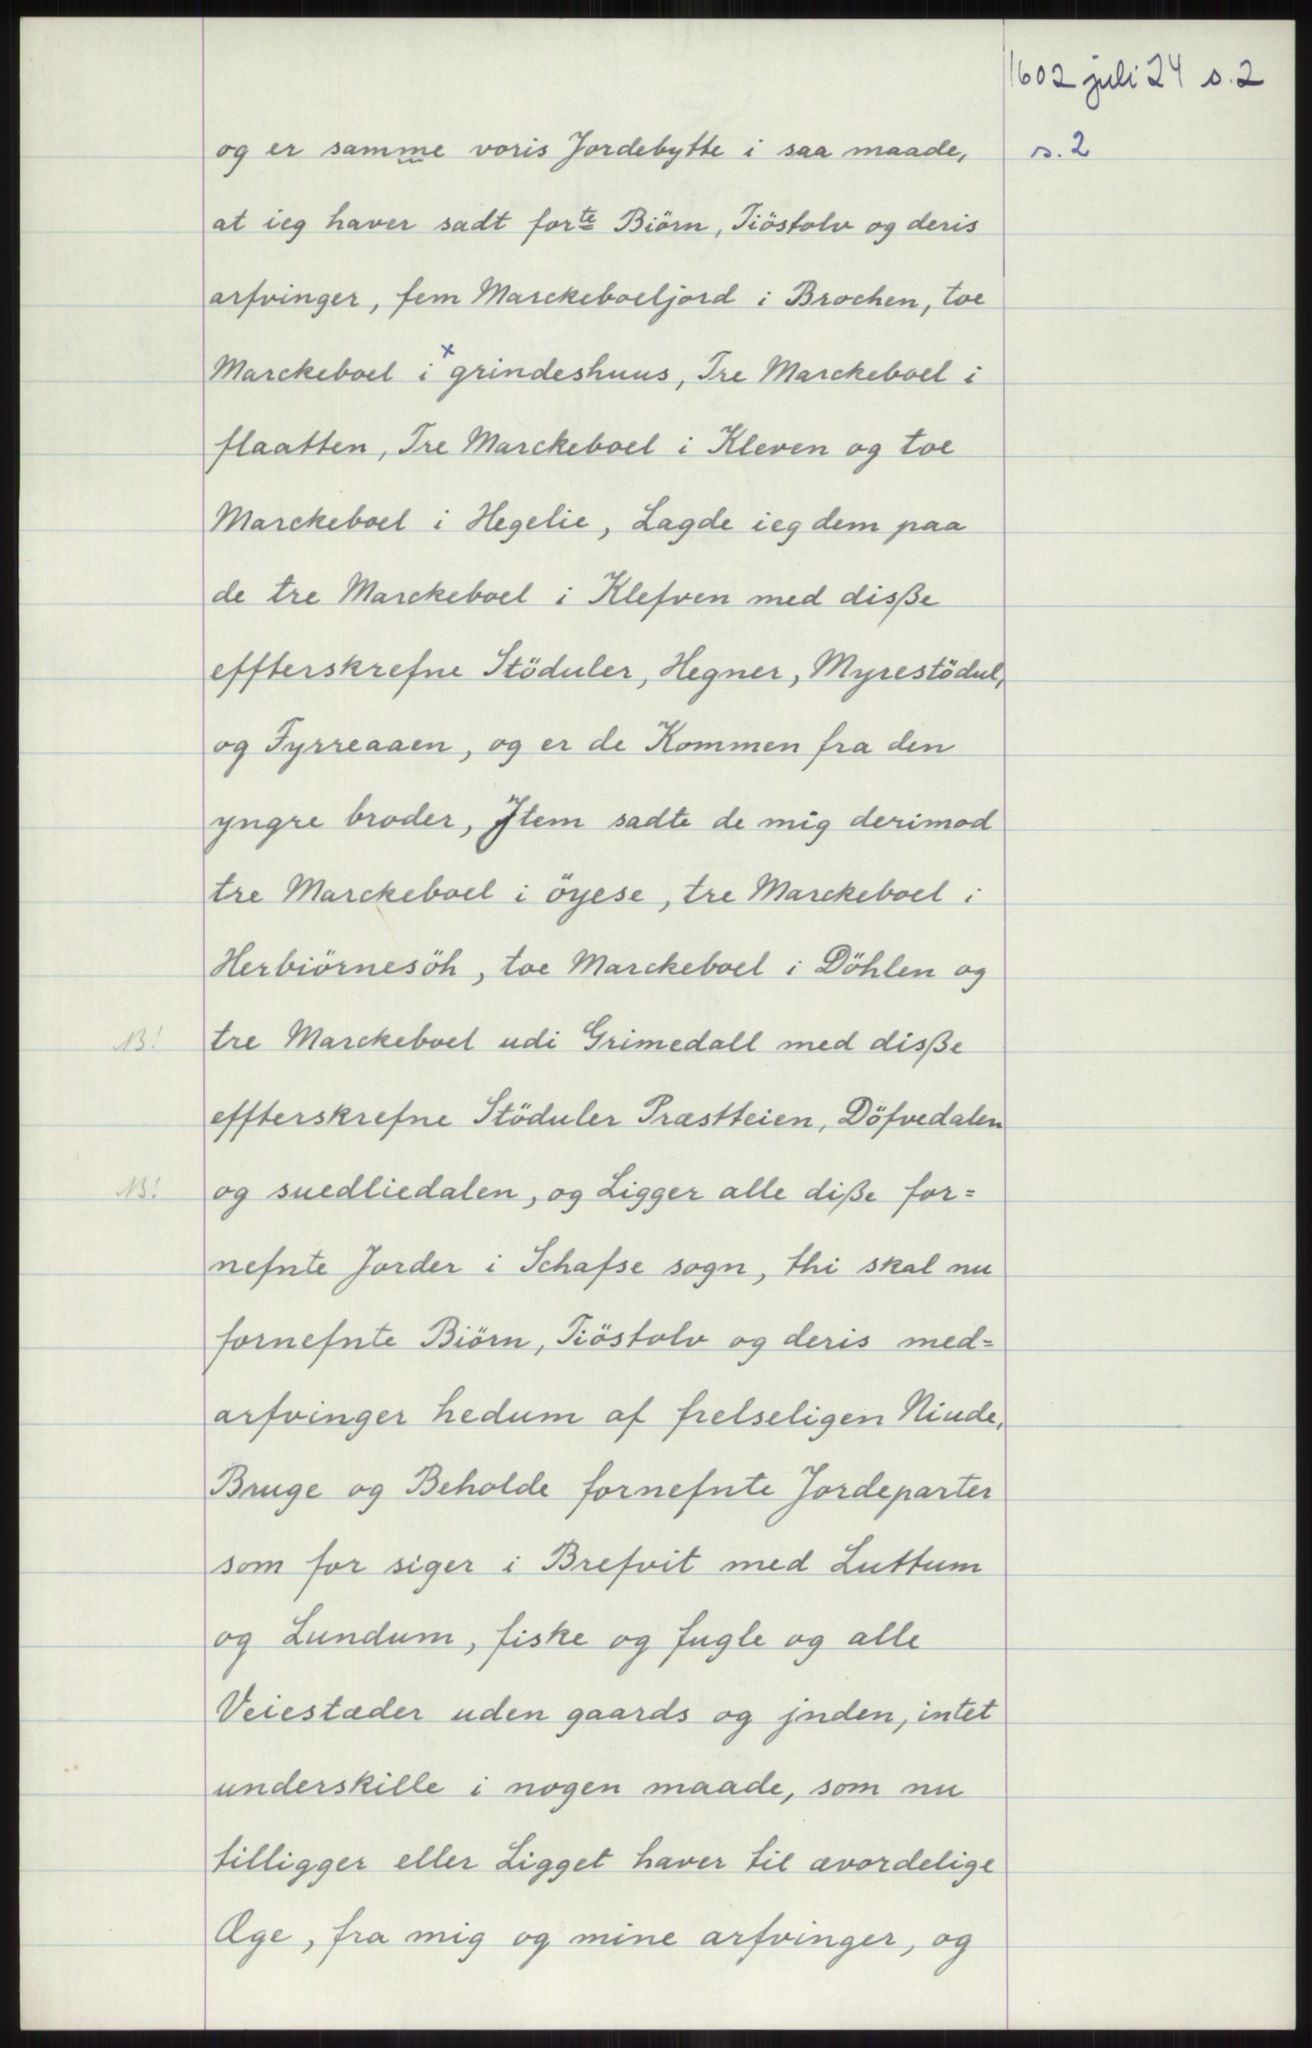 1602 juli 24 s. 2
s. 2
og er samme voris Jordebytte i saa maade,
at ieg haver sadt forte Biörn, Tiöstolv og deris
arfvinger, fem Marckeboeljord i Brochen, toe
Marckeboel i x grindeshuus, Tre Marckeboel i
flaatten, Tre Marckeboel i Kleven og toe
Marckeboel i Hegelie, Lagde ieg dem paa
de tre Marckeboel i Klefven med disße
effterskrefne Stöduler, Hegner, Myrestödul,
og Fyrreaaen, og er de Kommen fra den
yngre broder, Jtem sadte de mig derimod
tre Marckeboel i öyese, tre Marckeboel i
Herbiörnesöh, toe Marckeboel i Döhlen og
NB! tre Marckeboel udi Grimedall med disße
effterskrefne Stöduler Præstteien, Döfvedalen
NB! og suedliedalen, og Ligger alle diße for=
nefnte Jorder i Schafse sogn, thi skal nu
fornefnte Biörn, Tiöstolv og deris med=
arfvinger hedum af frelseligen Niude,
Bruge og Beholde fornefnte Jordeparter
som for siger i Brefvit med Luttum
og Lundum, fiske og fugle og alle
Veiestæder uden gaards og jnden, intet
underskille i nogen maade, som nu
tilligger eller Ligget haver til ævordelige
Æge, fra mig og mine arfvinger, og